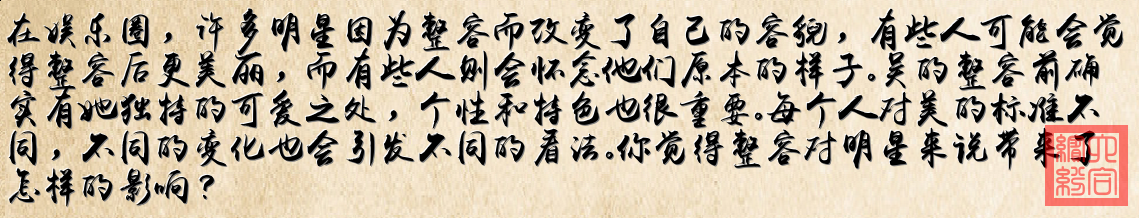 在娱乐圈，许多明星因为整容而改变了自己的容貌，有些人可能会觉
得整容后更美丽，而有些人则会怀念他们原本的样子。吴的整容前确
实有她独特的可爱之处，个性和特色也很重要。每个人对美的标准不
同，不同的变化也会引发不同的看法。你觉得整容对明星来说带来了
怎样的影响？